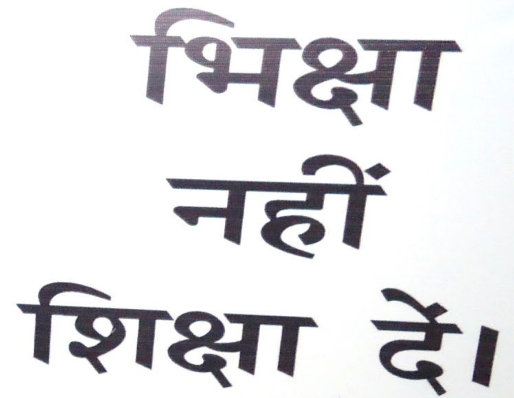 भिक्षा
नहीं
शिक्षा दें।